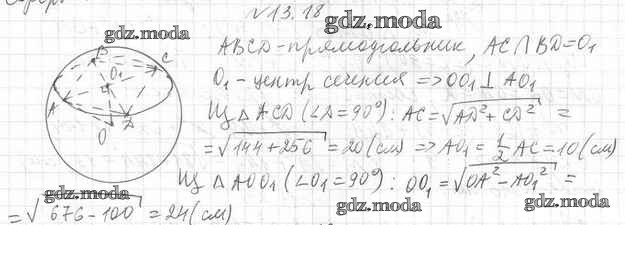 №13.18
gdz.moda
gdz.moda
ABCD - прямоугольник, AC∩BD=O₁
O₁ - центр сечения => OO₁ ⊥ AO₁
Из △ACD (∠D=90°): AC=√AD²+CD² =
=√144+256 = 20 (см) => AO₁ = 1/2 AC = 10 (см)
Из △AOO₁ (∠O₁=90°): OO₁ = √OA²-AO₁² =
=√676-100 = 24 (см)
gdz.moda
gdz.moda
gdz.moda
B
C
O₁
A
D
O